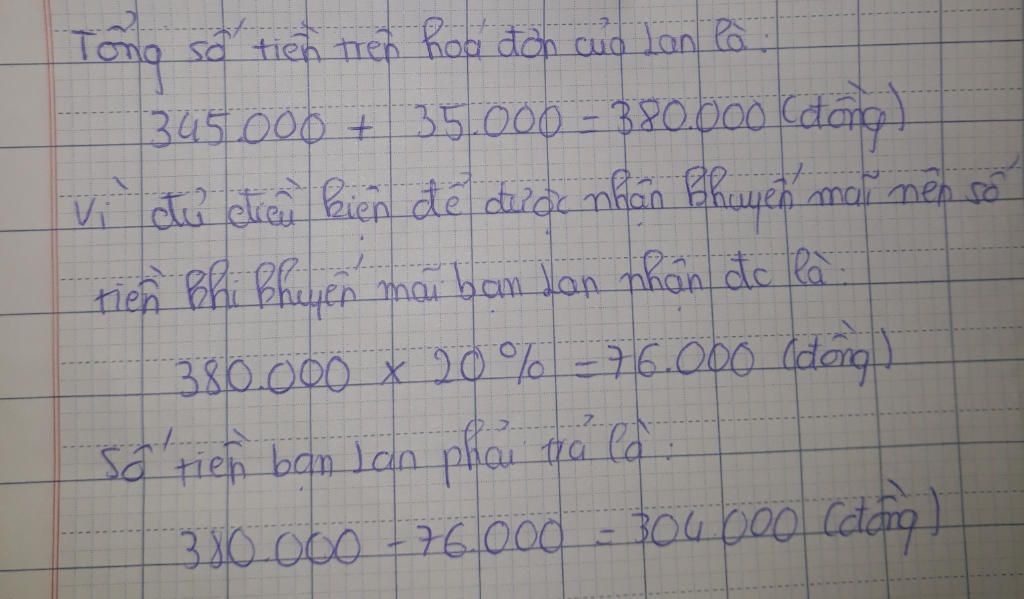 Tổng số tiền trên hoá đơn của Lan là:
345.000 + 35.000 = 380.000 (đồng)
Vì đủ điều kiện để được nhận khuyến mãi nên số
tiền khi khuyến mãi bạn Lan nhận đc là:
380.000 x 20% = 76.000 (đồng)
Số tiền bạn Lan phải trả là:
380.000 - 76.000 = 304.000 (đồng)